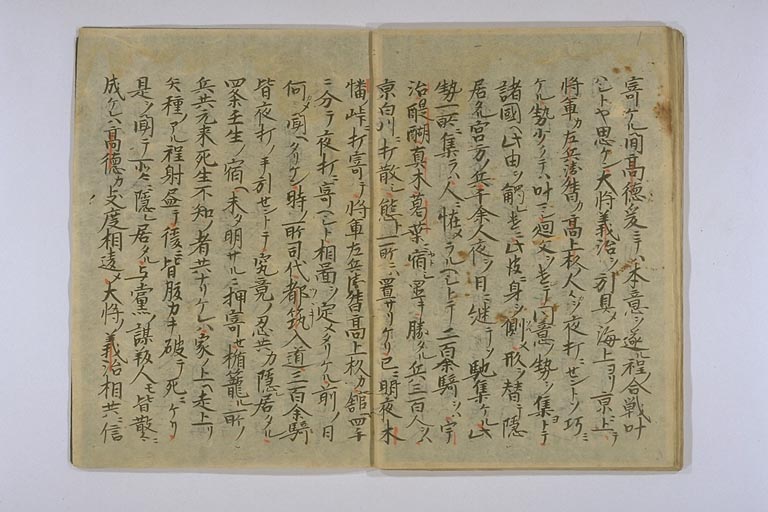 寄ケル間高徳爰ニテハ本意ヲ遂ル程合戦叶
ハシトヤ思ケン大将義治ヲ引具メ海上ヨリ京ニ上テ
将軍カ左兵衛督ヲ高上杉ノ人々ヲ夜打ニセントソ巧ミ
ケル勢少クテハ叶マシ廻文ヲ遣テ同意ノ勢ヲ集ヨトテ
諸國ヘ此由ヲ觸遣ニ此彼ニ身ヲ側メ形ヲ替テ隠
居タル宮方ノ兵千余人夜ヲ日ニ継テソ馳集ケル此
勢一所ニ集ラハ人ニ恠メラルヘシトテ二百余騎ヲハ宇
治醍醐真木葛葉ニ宿シ置キ勝タル兵三百人ヲハ
京白川ニ打散シ態ト一所ニハ置サリケリ已ニ明夜木
幡峠ニ打寄テ将軍左兵衛督高上杉カ舘ヘ四手
ニ分テ夜打ニ寄ヘシト相圖ヲ定メタリケル前ノ日
何トメ聞ヘタリケン時ノ所司代都筑入道三百余騎
皆夜打ノ手引セントテ究竟ノ忍共カ隠居タル
四条壬生ノ宿ヘ未タ明サルニ押寄セ楯籠ル所ノ
兵共元来死生不知ノ者共ナリケレハ家ノ上ヘ走上リ
矢種ノアル程射盡テ後ニ皆腹カキ破テ死ニケリ
是ヲ聞テ所々ニ隠レ居タル与黨ノ謀叛人モ皆散々ニ
成ケレハ高徳カ支度相違メ大将ノ義治相共ニ信